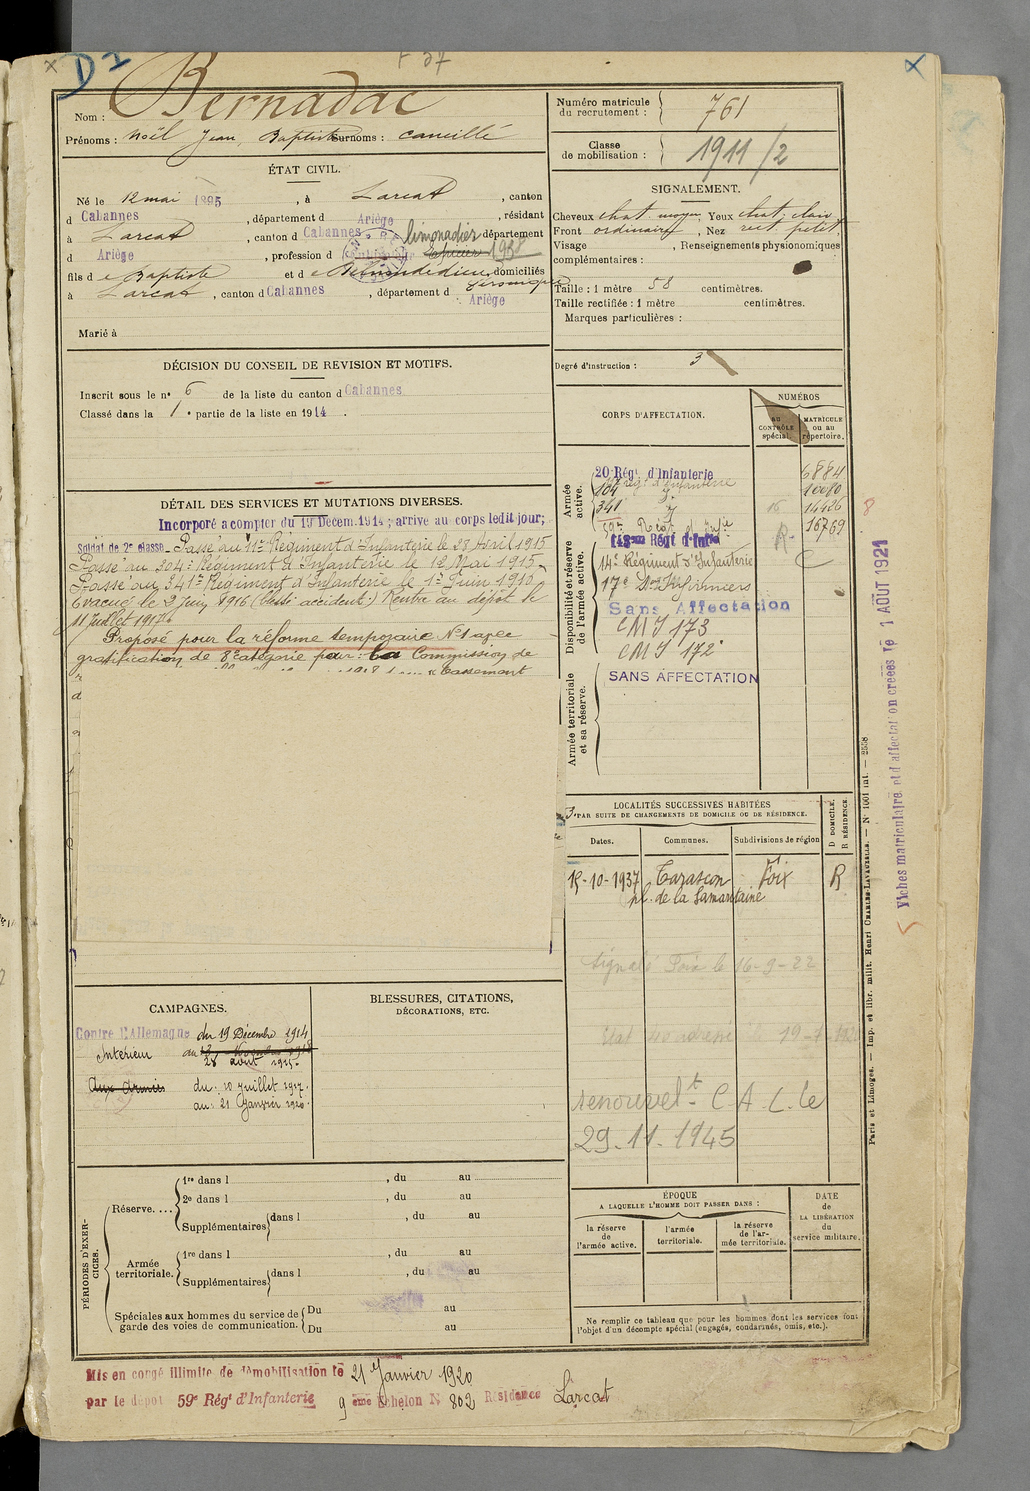 D 1
Nom : Bernadac
Prénoms : Noël Jean Baptiste Surnoms : Camille
Numéro matricule du recrutement : 761
Classe de mobilisation : 1911/2
ÉTAT CIVIL.
Né le 12 mai 1895, à Larcat, canton
d Cabannes, département d Ariège, résidant
à Larcat, canton d Cabannes, département
d Ariège, profession d limonadier Epicier 1938
fils de Baptiste et de domiciliés
à Larcat, canton d Cabannes, département d Ariège
Marié à
SIGNALEMENT.
Cheveux chat. moyen, Yeux chat. clair
Front ordinaire, Nez rect. petit
Visage , Renseignements physionomiques
complémentaires :
Taille : 1 mètre 58 centimètres.
Taille rectifiée : 1 mètre centimètres.
Marques particulières :
Degré d'instruction : 3
DÉCISION DU CONSEIL DE REVISION ET MOTIFS.
Inscrit sous le n° 6 de la liste du canton d Cabannes
Classé dans la 1e partie de la liste en 1914.
DÉTAIL DES SERVICES ET MUTATIONS DIVERSES.
Incorporé à compter du 19 Décem. 1914; arrivé au corps ledit jour;
Soldat de 2e classe - Passé au 11e Régiment d'Infanterie le 28 Avril 1915
Passé au 204e Régiment d'Infanterie le 12 Mai 1915
Passé au 341e Régiment d'Infanterie le 1er Juin 1916
Evacué le 2 Juin 1916 (blessé accident.) Rentré au dépôt le
11 Juillet 1917
Proposé pour la réforme temporaire N°1 avec
gratification de 8e catégorie par: la Commission de
CORPS D'AFFECTATION.
NUMÉROS
AU CONTRÔLE spécial.
MATRICULE ou au répertoire.
Armée active.
20 Régt d'Infanterie 6884
204 10080
341 14426
59e Régt d'Infie 16769
Disponibilité et réserve de l'armée active.
143eme Régt d'Infie
14e Régiment d'Infanterie
17e Son Infirmiers
Sans Affectation
CMI 173
CMI 172
Armée territoriale et sa réserve.
SANS AFFECTATION
Fiches matriculaire et d'affectation créées le 1 AOUT 1921
LOCALITÉS SUCCESSIVES HABITÉES
PAR SUITE DE CHANGEMENTS DE DOMICILE OU DE RÉSIDENCE.
Dates. Communes. Subdivisions de région D DOMICILE. R RÉSIDENCE.
15-10-1937 Tarascon Foix R
pl. de la Samaritaine
Signalé Foix le 16-9-22
renouvelt C A L le
29-11-1945
CAMPAGNES.
Contre l'Allemagne du 19 Décembre 1914
Intérieur au
28 août 1915.
Aux Armées du: 10 juillet 1917.
au: 21 Janvier 1920.
BLESSURES, CITATIONS,
DÉCORATIONS, ETC.
PÉRIODES D'EXERCICES.
Réserve....
1re dans l , du au
2e dans l , du au
Supplémentaires dans l , du au
Armée territoriale.
1re dans l , du au
Supplémentaires dans l , du au
Spéciales aux hommes du service de
garde des voies de communication.
Du au
Du au
ÉPOQUE
A LAQUELLE L'HOMME DOIT PASSER DANS :
la réserve de l'armée active.
l'armée territoriale.
la réserve de l'armée territoriale.
DATE de LA LIBÉRATION du service militaire.
Ne remplir ce tableau que pour les hommes dont les services font
l'objet d'un décompte spécial (engagés, condamnés, omis, etc.).
Paris et Limoges. — Imp. et libr. milit. Henri CHARLES-LAVAUZELLE. — N° 1001 int. — 2558
Mis en congé illimité de démobilisation le 21 Janvier 1920
par le dépôt 59e Régt d'Infanterie 9eme Echelon N° 802 Résidence Larcat